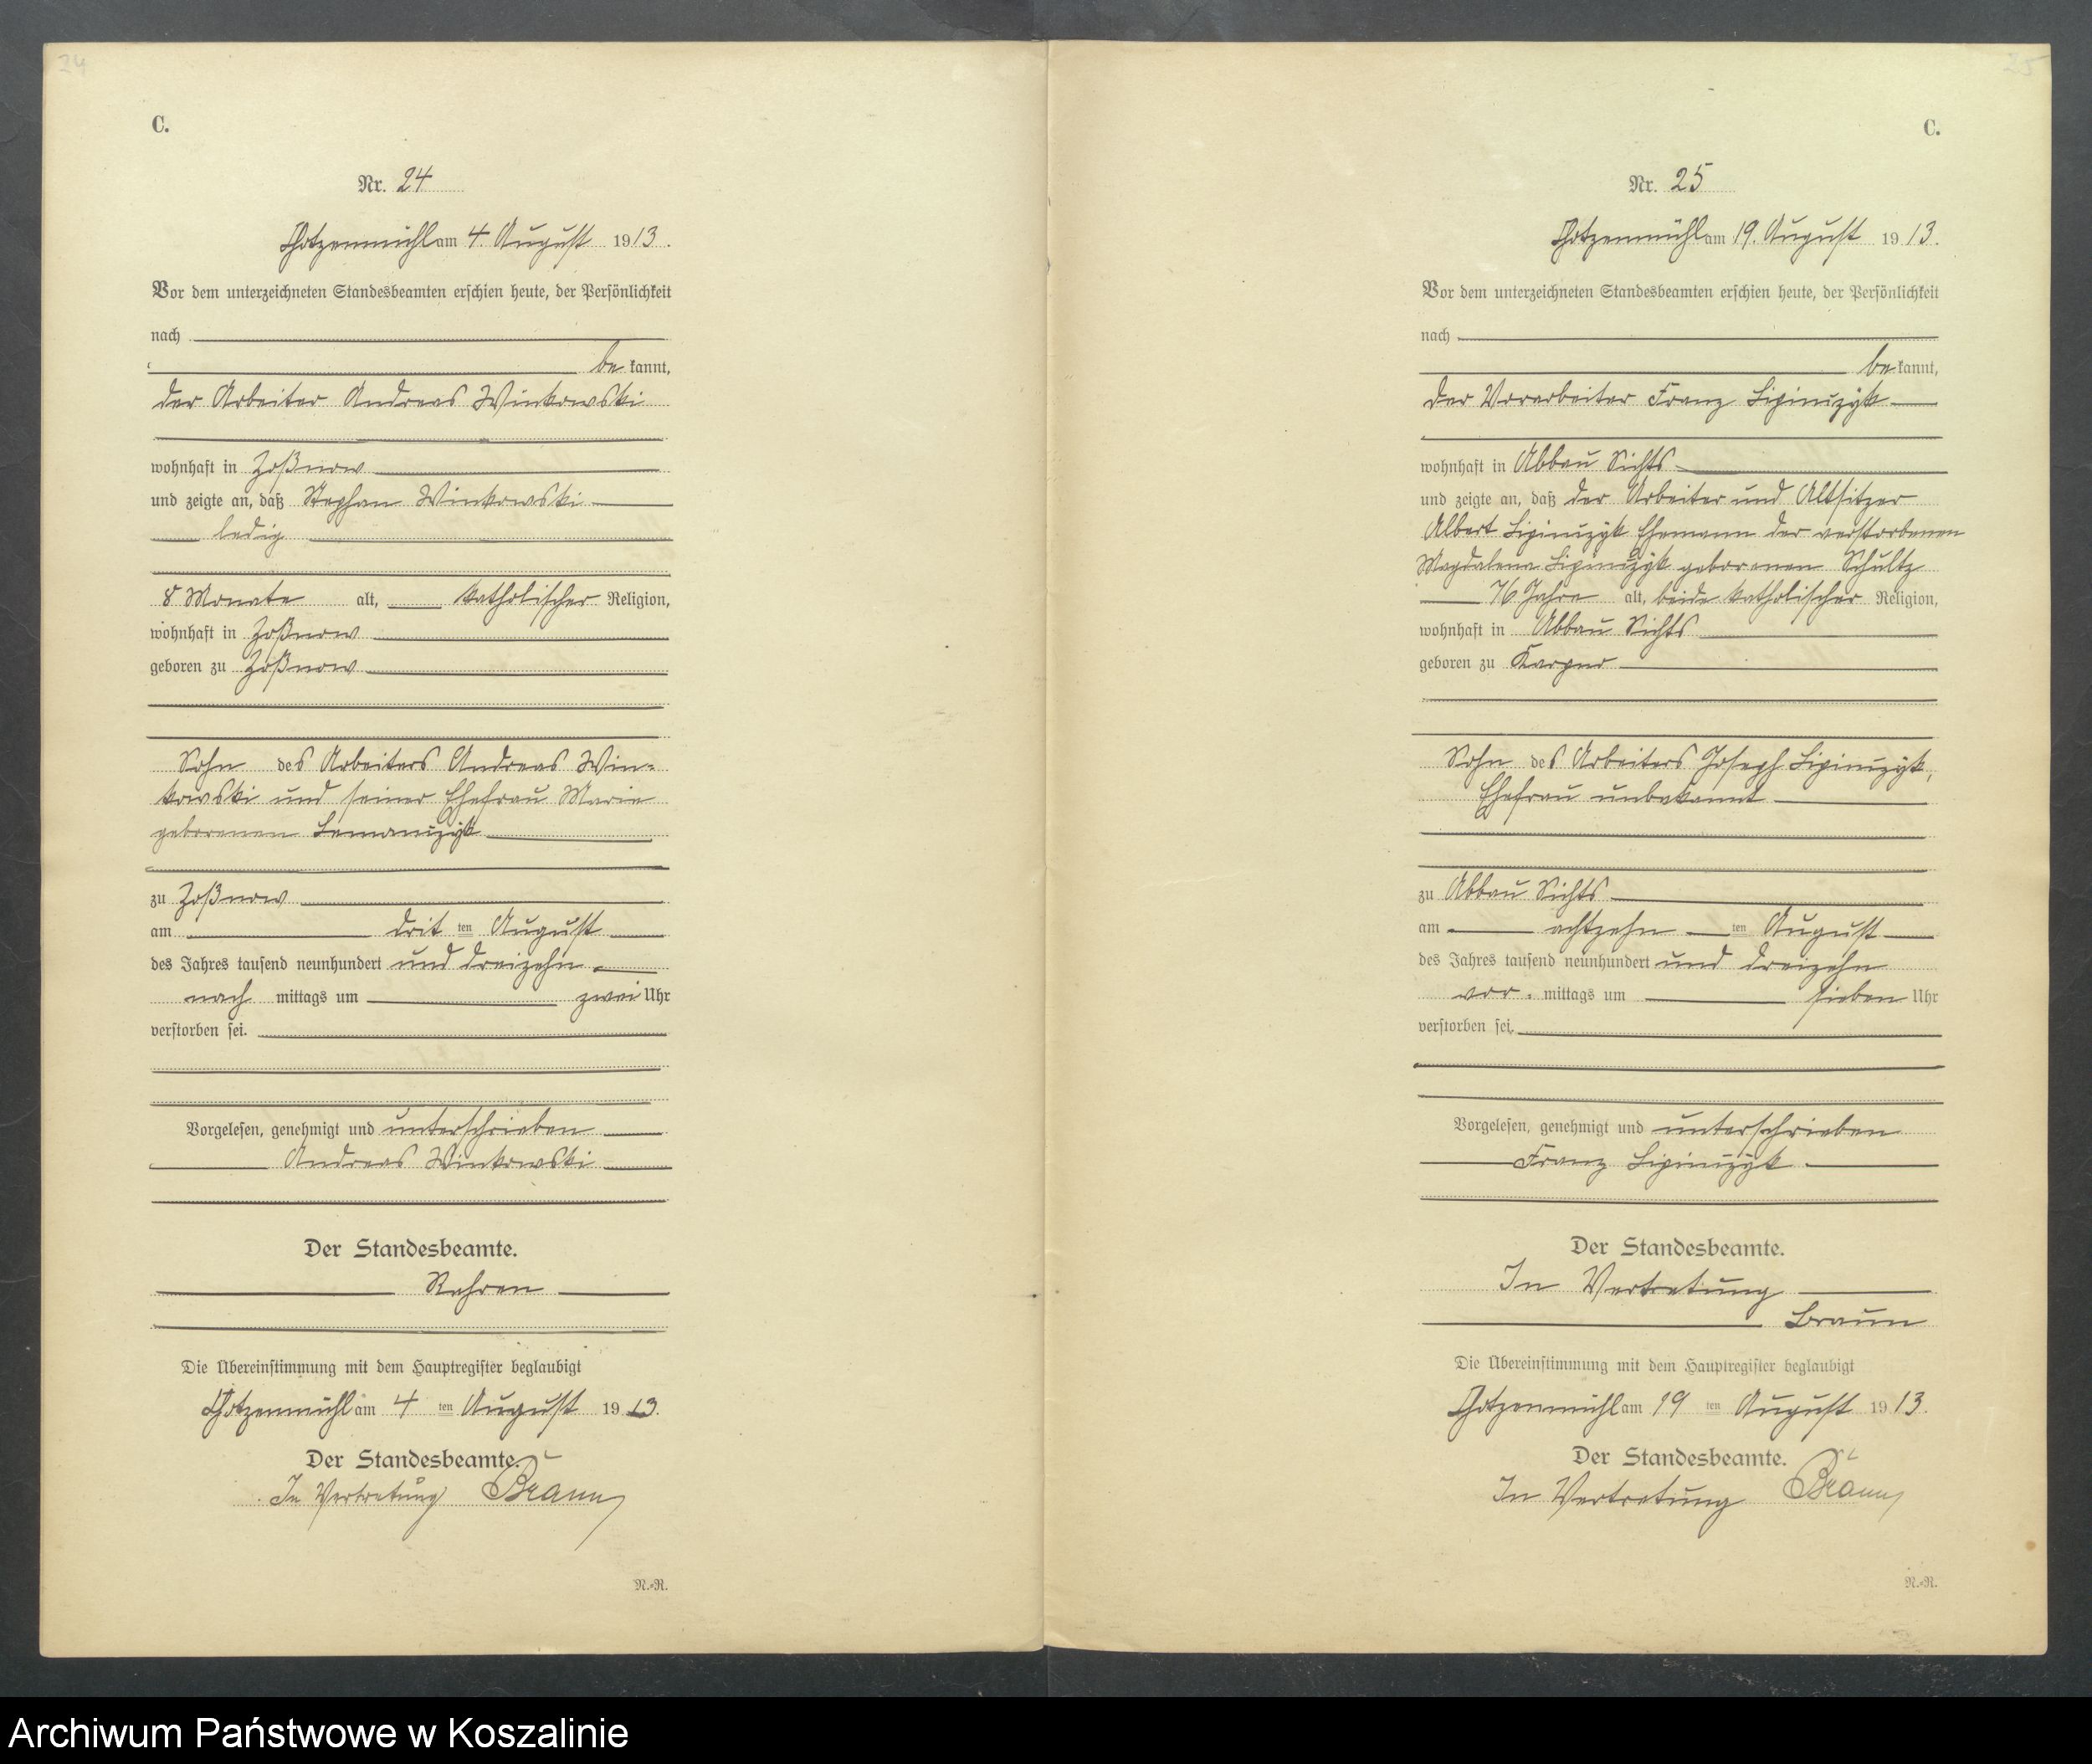 24
C.
Nr. 24
Chotzenmühl am 4. August 1913.
Vor dem unterzeichneten Standesbeamten erschien heute, der Persönlichkeit
nach
be kannt,
der Arbeiter Andreas Winkowski
wohnhaft in Zoßnow
und zeigte an, daß Stephan Winkowski
ledig
8 Monate alt, katholischer Religion,
wohnhaft in Zoßnow
geboren zu Zoßnow
Sohn des Arbeiters Andreas Win-
kowski und seiner Ehefrau Marie
geborenen Lemanczyk
zu Zoßnow
am drit ten August
des Jahres tausend neunhundert und dreizehn
nach mittags um zwei Uhr
verstorben sei.
Vorgelesen, genehmigt und unterschrieben
Andreas Winkowski
Der Standesbeamte.
Rehren
Die Übereinstimmung mit dem Hauptregister beglaubigt
Chotzenmühl am 4 ten August 1913.
Der Standesbeamte.
In Vertretung Braun
N.-R.
25
C.
Nr. 25
Chotzenmühl am 19. August 1913.
Vor dem unterzeichneten Standesbeamten erschien heute, der Persönlichkeit
nach
be kannt,
der Vorarbeiter Franz Lipinczyk
wohnhaft in Abbau Sichts
und zeigte an, daß der Arbeiter und Altsitzer
Albert Lipinczyk Ehemann der verstorbenen
Magdalena Lipinczyk geborenen Schultz
76 Jahre alt, beide katholischer Religion,
wohnhaft in Abbau Sichts
geboren zu Karpno
Sohn des Arbeiters Joseph Lipinczyk,
Ehefrau unbekannt
zu Abbau Sichts
am achtzehn ten August
des Jahres tausend neunhundert und dreizehn
vor mittags um sieben Uhr
verstorben sei.
Vorgelesen, genehmigt und unterschrieben
Franz Lipinczyk
Der Standesbeamte.
In Vertretung
Braun
Die Übereinstimmung mit dem Hauptregister beglaubigt
Chotzenmühl am 19 ten August 1913.
Der Standesbeamte.
In Vertretung Braun
N.-R.
Archiwum Państwowe w Koszalinie